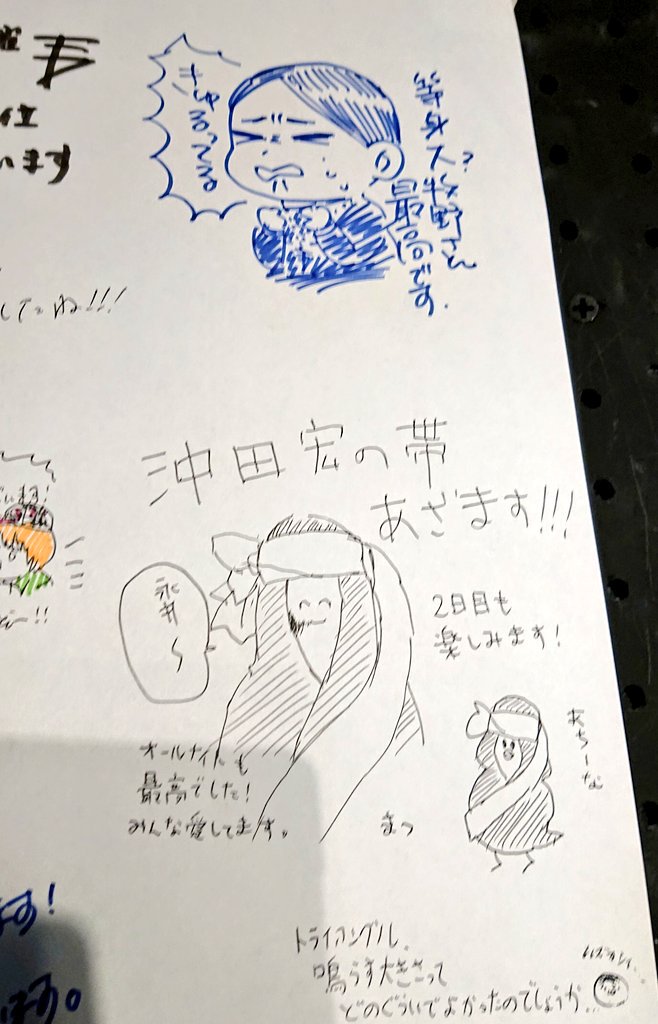 います
してたね!!!
きゅるってる
等身大?牧野さん
最高です。
沖田宏の帯
あざます!!!
永井〜
2日目も
楽しみます!
あちーな
オールナイトも
最高でした!
みんな愛してます。
まつ
トライアングル、
鳴らす大きさって
どのぐらいでよかったのでしょうか...
ムズカシイ...
ます!